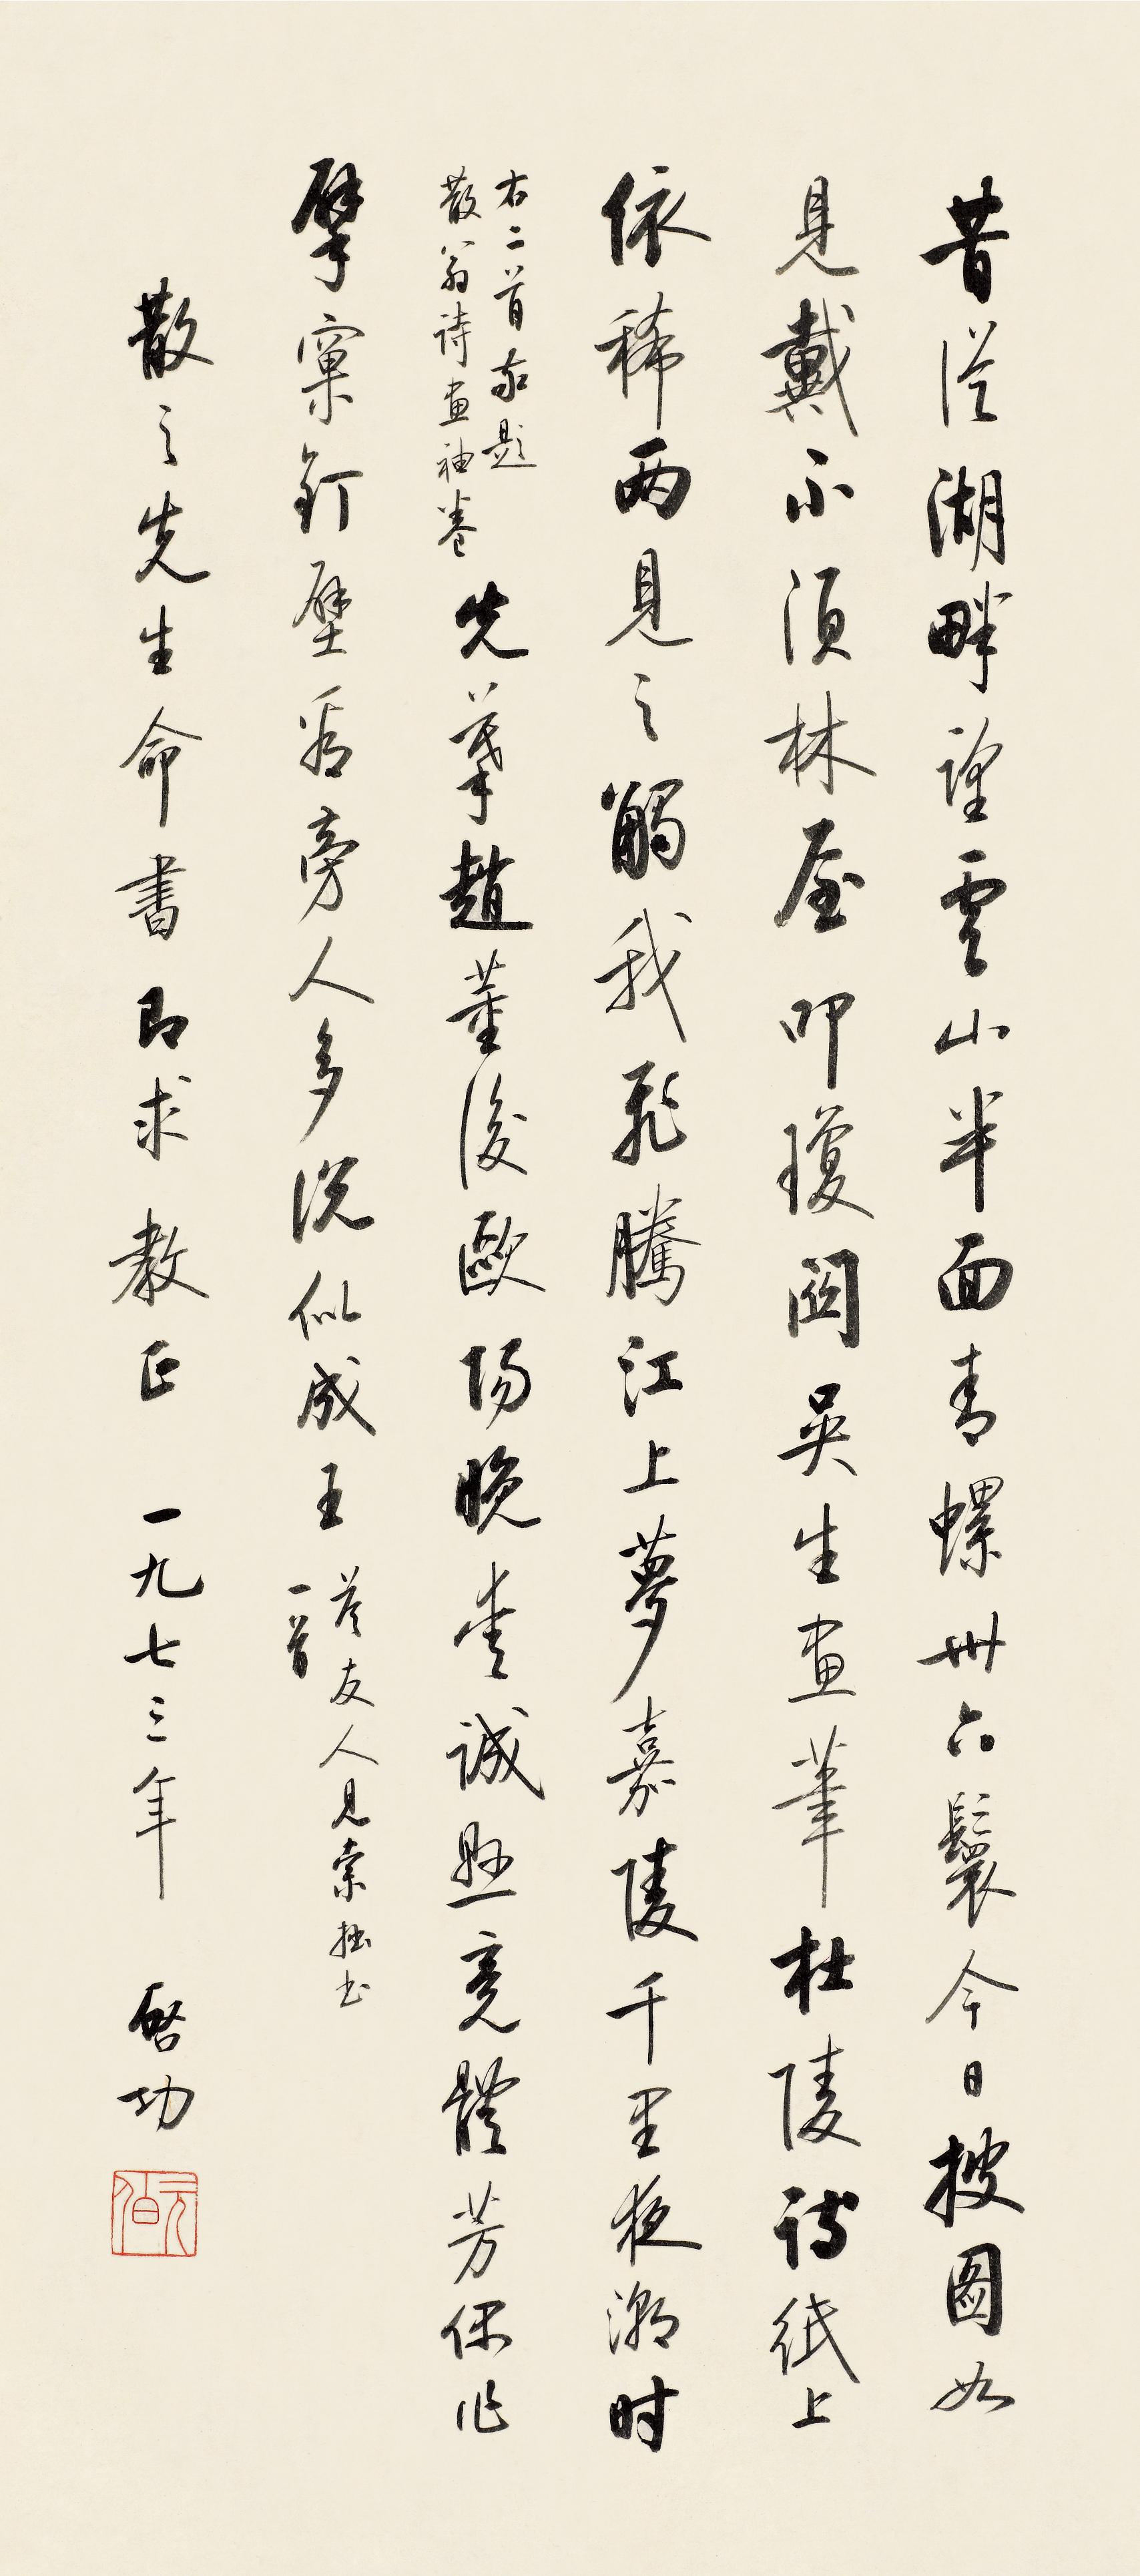 昔從湖畔望雲山半面青螺卅六鬟今日披圖如
見戴不須林屋叩瓊關吳生畫筆杜陵詩紙上
依稀两見之觸我飛騰江上夢嘉陵千里夜潮时
右二首敬題
散翁詩畫袖卷
先摹趙董後歐陽晚愛誠懸竟體芳偶作
擘窠釘壁看旁人多說似成王
答友人見索拙書
一首
散之先生命書即求教正 一九七三年 啓功
元伯